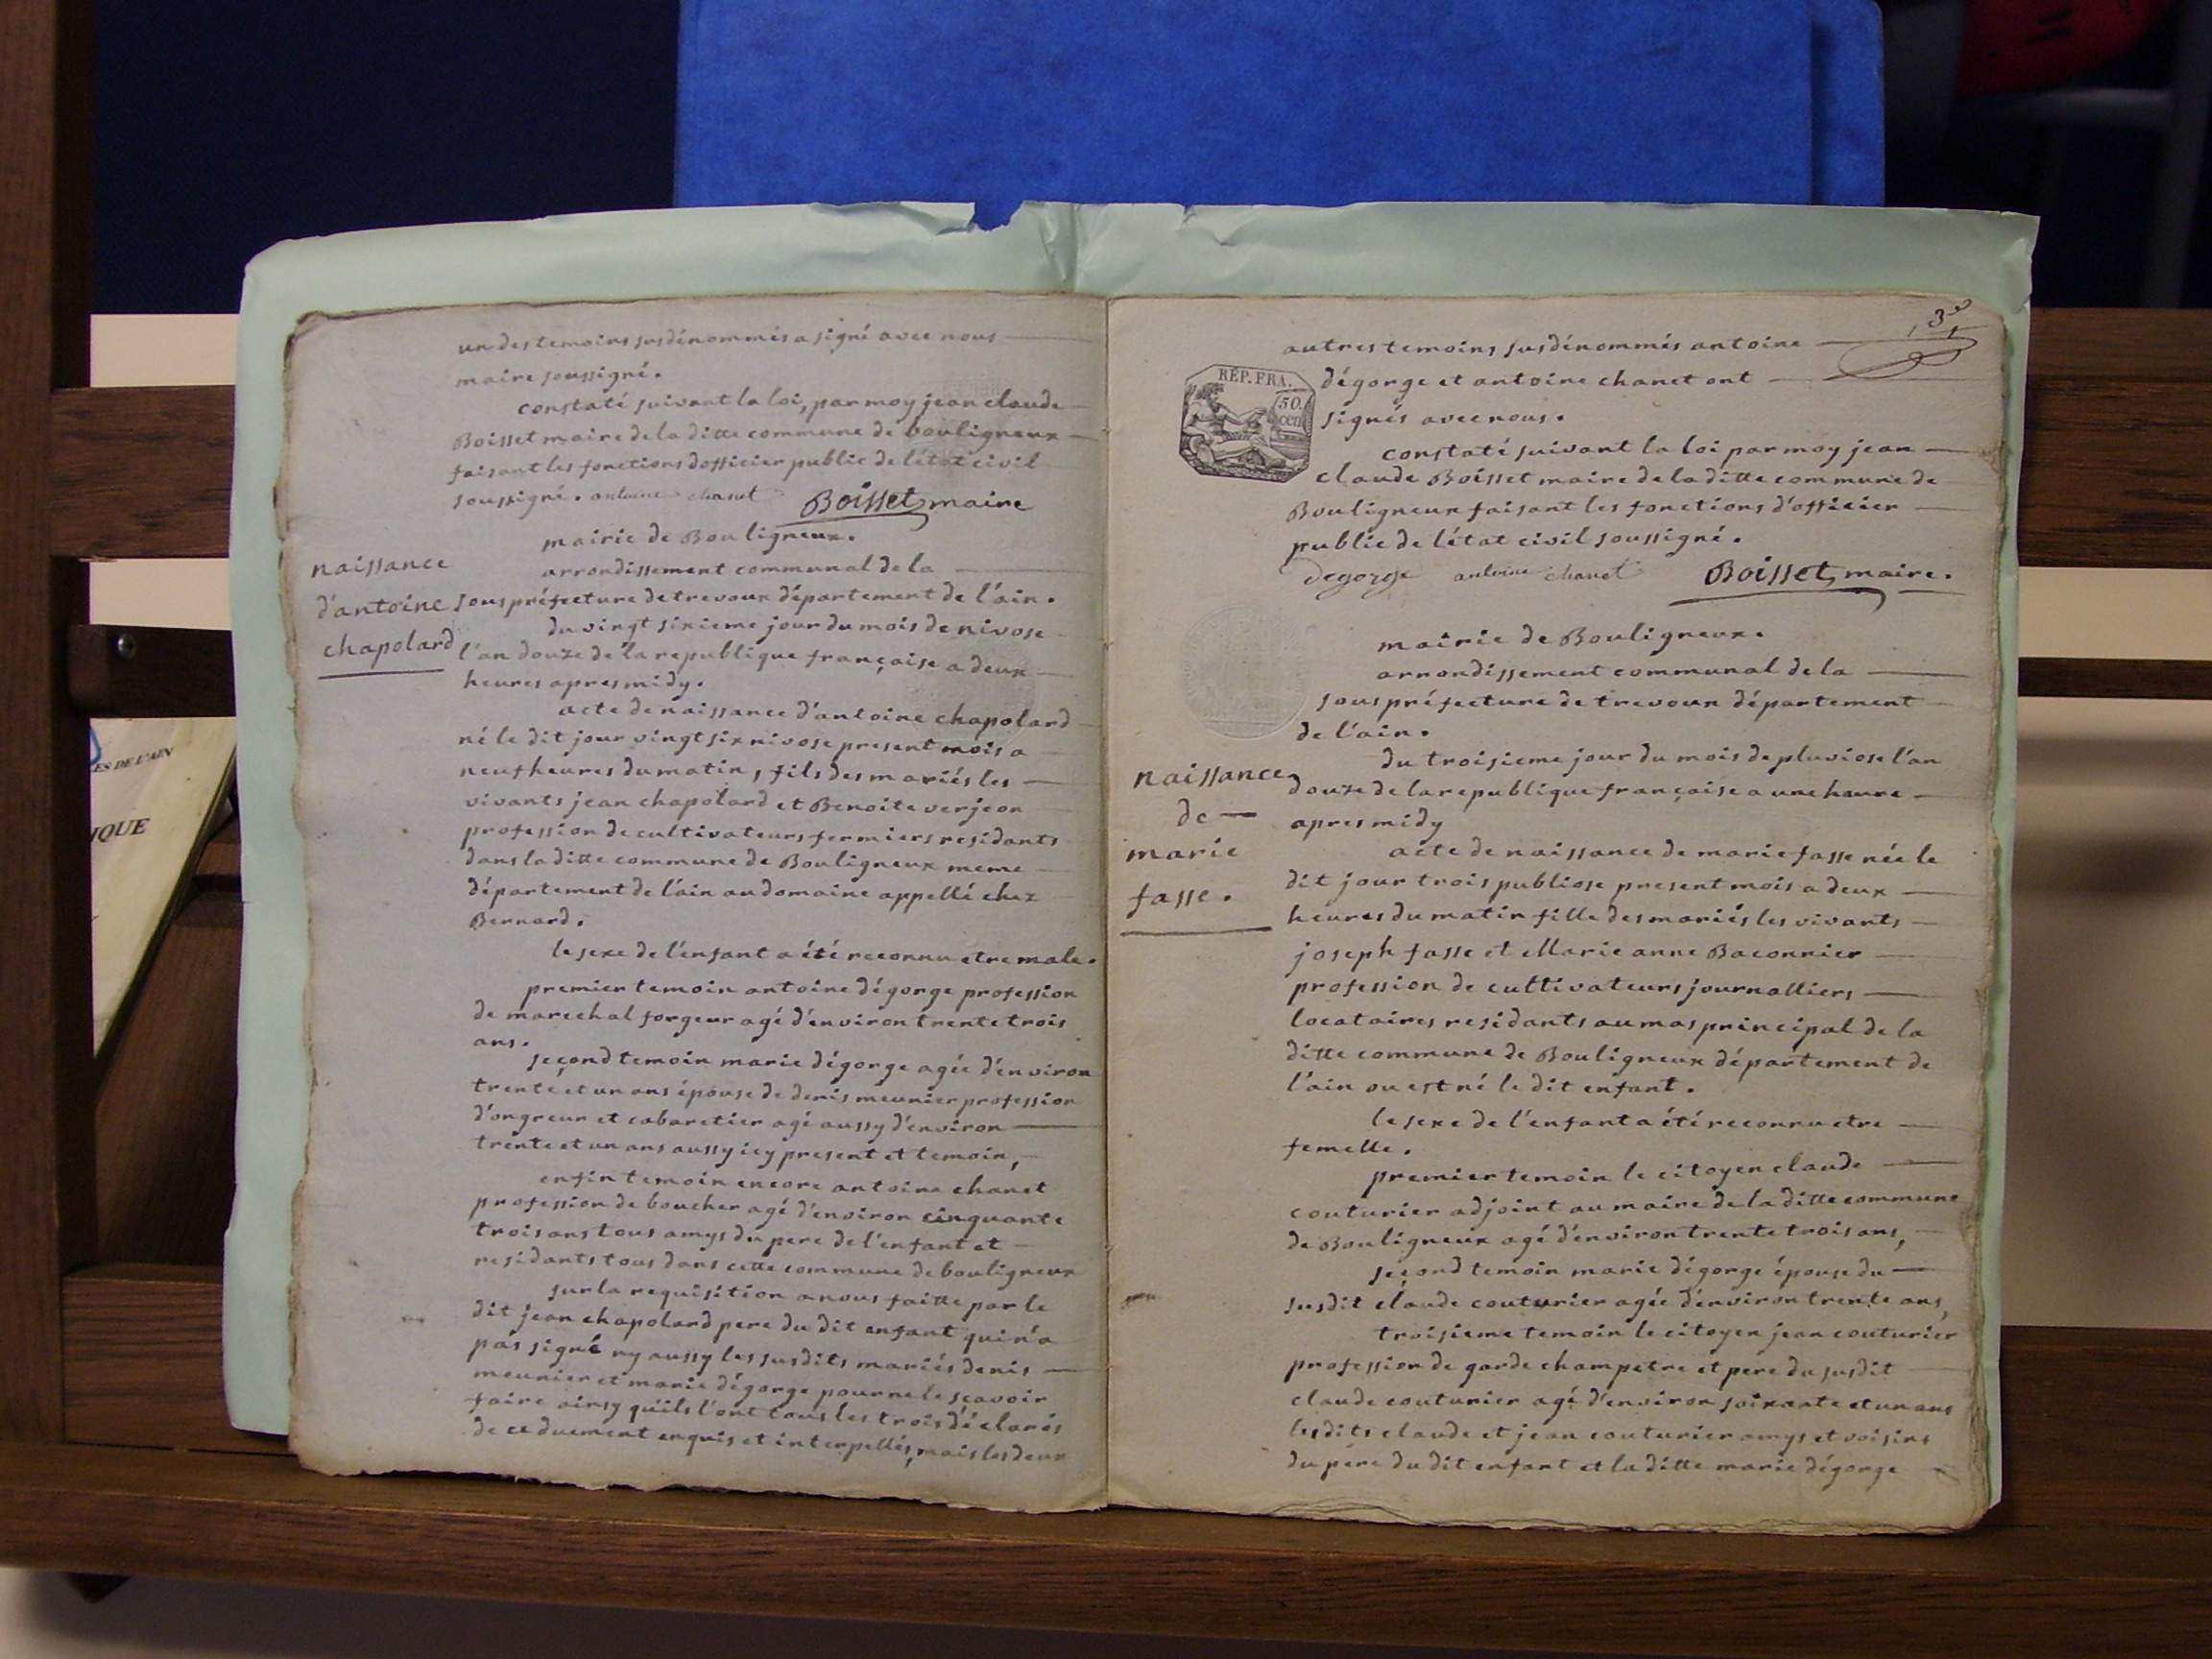 un des temoins susdénommés a signé avec nous
maire soussigné.
constaté suivant la loi, par moy jean claude
Boisset maire de la ditte commune de bouligneux
faisant les fonctions dofficier public de l'état civil
soussigné. antoine chanet Boisset maire
mairie de Bouligneux.
arrondissement communal de la
souspréfecture de trevoux département de l'ain.
naissance
d'antoine
chapolard
du vingt sixieme jour du mois de nivose
l'an douze de la republique française a deux
heures apres midy.
acte de naissance d'antoine chapolard
né le dit jour vingt six nivose present mois a
neuf heures du matin, fils des mariés les
vivants jean chapolard et Benoite verjeon
profession de cultivateurs fermiers residants
dans la ditte commune de Bouligneux meme
département de l'ain au domaine appellé chez
Bernard.
le sexe de l'enfant a été reconnu etre male.
premier temoin antoine dégorge profession
de marechal forgeur agé d'environ trente trois
ans.
second temoin marie dégorge agée d'environ
trente et un ans épouse de denis meunier profession
d'ongreur et cabaretier agé aussy d'environ
trente et un ans aussy icy present et temoin,
enfin temoin encore antoine chanet
profession de boucher agé d'environ cinquante
trois ans tous amys du pere de l'enfant et
residants tous dans cette commune de bouligneux
sur la requisition a nous faitte par le
dit jean chapolard pere du dit enfant qui n'a
pas signé ny aussy les susdits mariés denis
meunier et marie dégorge pour ne le scavoir
faire ainsy qu'ils l'ont tous les trois déclarés
de ce duement enquis et interpellés, mais les deux
3e
autres temoins susdénommés antoine
dégorge et antoine chanet ont
signés avec nous.
RÉP. FRA.
50.
cen
constaté suivant la loi par moy jean
claude Boisset maire de la ditte commune de
Bouligneux faisant les fonctions d'officier
public de l'état civil soussigné.
degorge antoine chanet Boisset, maire.
mairie de Bouligneux.
arrondissement communal de la
souspréfecture de trevoux département
de l'ain.
naissance
de
marie
fasse.
du troisieme jour du mois de pluviose l'an
douze de la republique française a une heure
apres midy
acte de naissance de marie fasse née le
dit jour trois publiose present mois a deux
heures du matin fille des mariés les vivants
joseph fasse et Marie anne Baconnier
profession de cultivateurs journalliers
locataires residants au mas principal de la
ditte commune de Bouligneux département de
l'ain ou est né le dit enfant.
le sexe de l'enfant a été reconnu etre
femelle.
premier temoin le citoyen claude
couturier adjoint au maire de la ditte commune
de Bouligneux agé d'environ trente trois ans,
second temoin marie dégorge épouse du
susdit claude couturier agée d'environ trente ans,
troisieme temoin le citoyen jean couturier
profession de garde champetre et pere du susdit
claude couturier agé d'environ soixante et un ans
lesdits claude et jean couturier amys et voisins
du pére du dit enfant et la ditte marie dégorge
ES DE L'AIN
IQUE